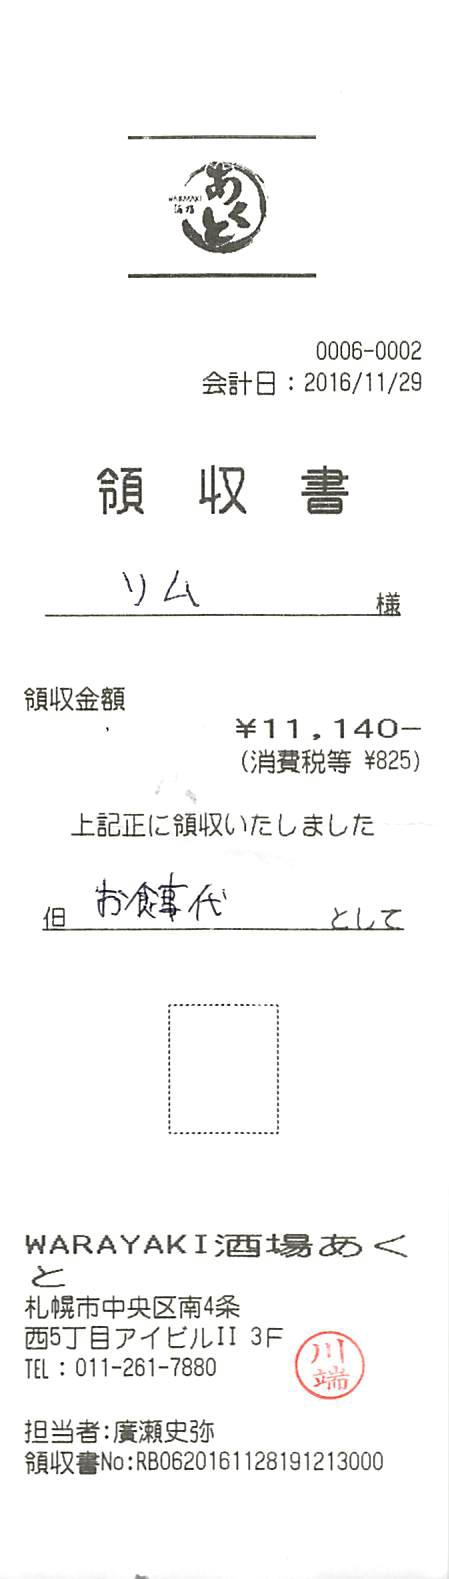 WARAYAKI
酒場
あくと
0006-0002
会計日：2016/11/29
領 収 書
リム 様
領収金額
¥11,140-
(消費税等 ¥825)
上記正に領収いたしました
但 お食事代 として
WARAYAKI酒場あく
と
札幌市中央区南4条
西5丁目アイビルII 3F
TEL：011-261-7880
川端
担当者:廣瀬史弥
領収書No:RB0620161128191213000